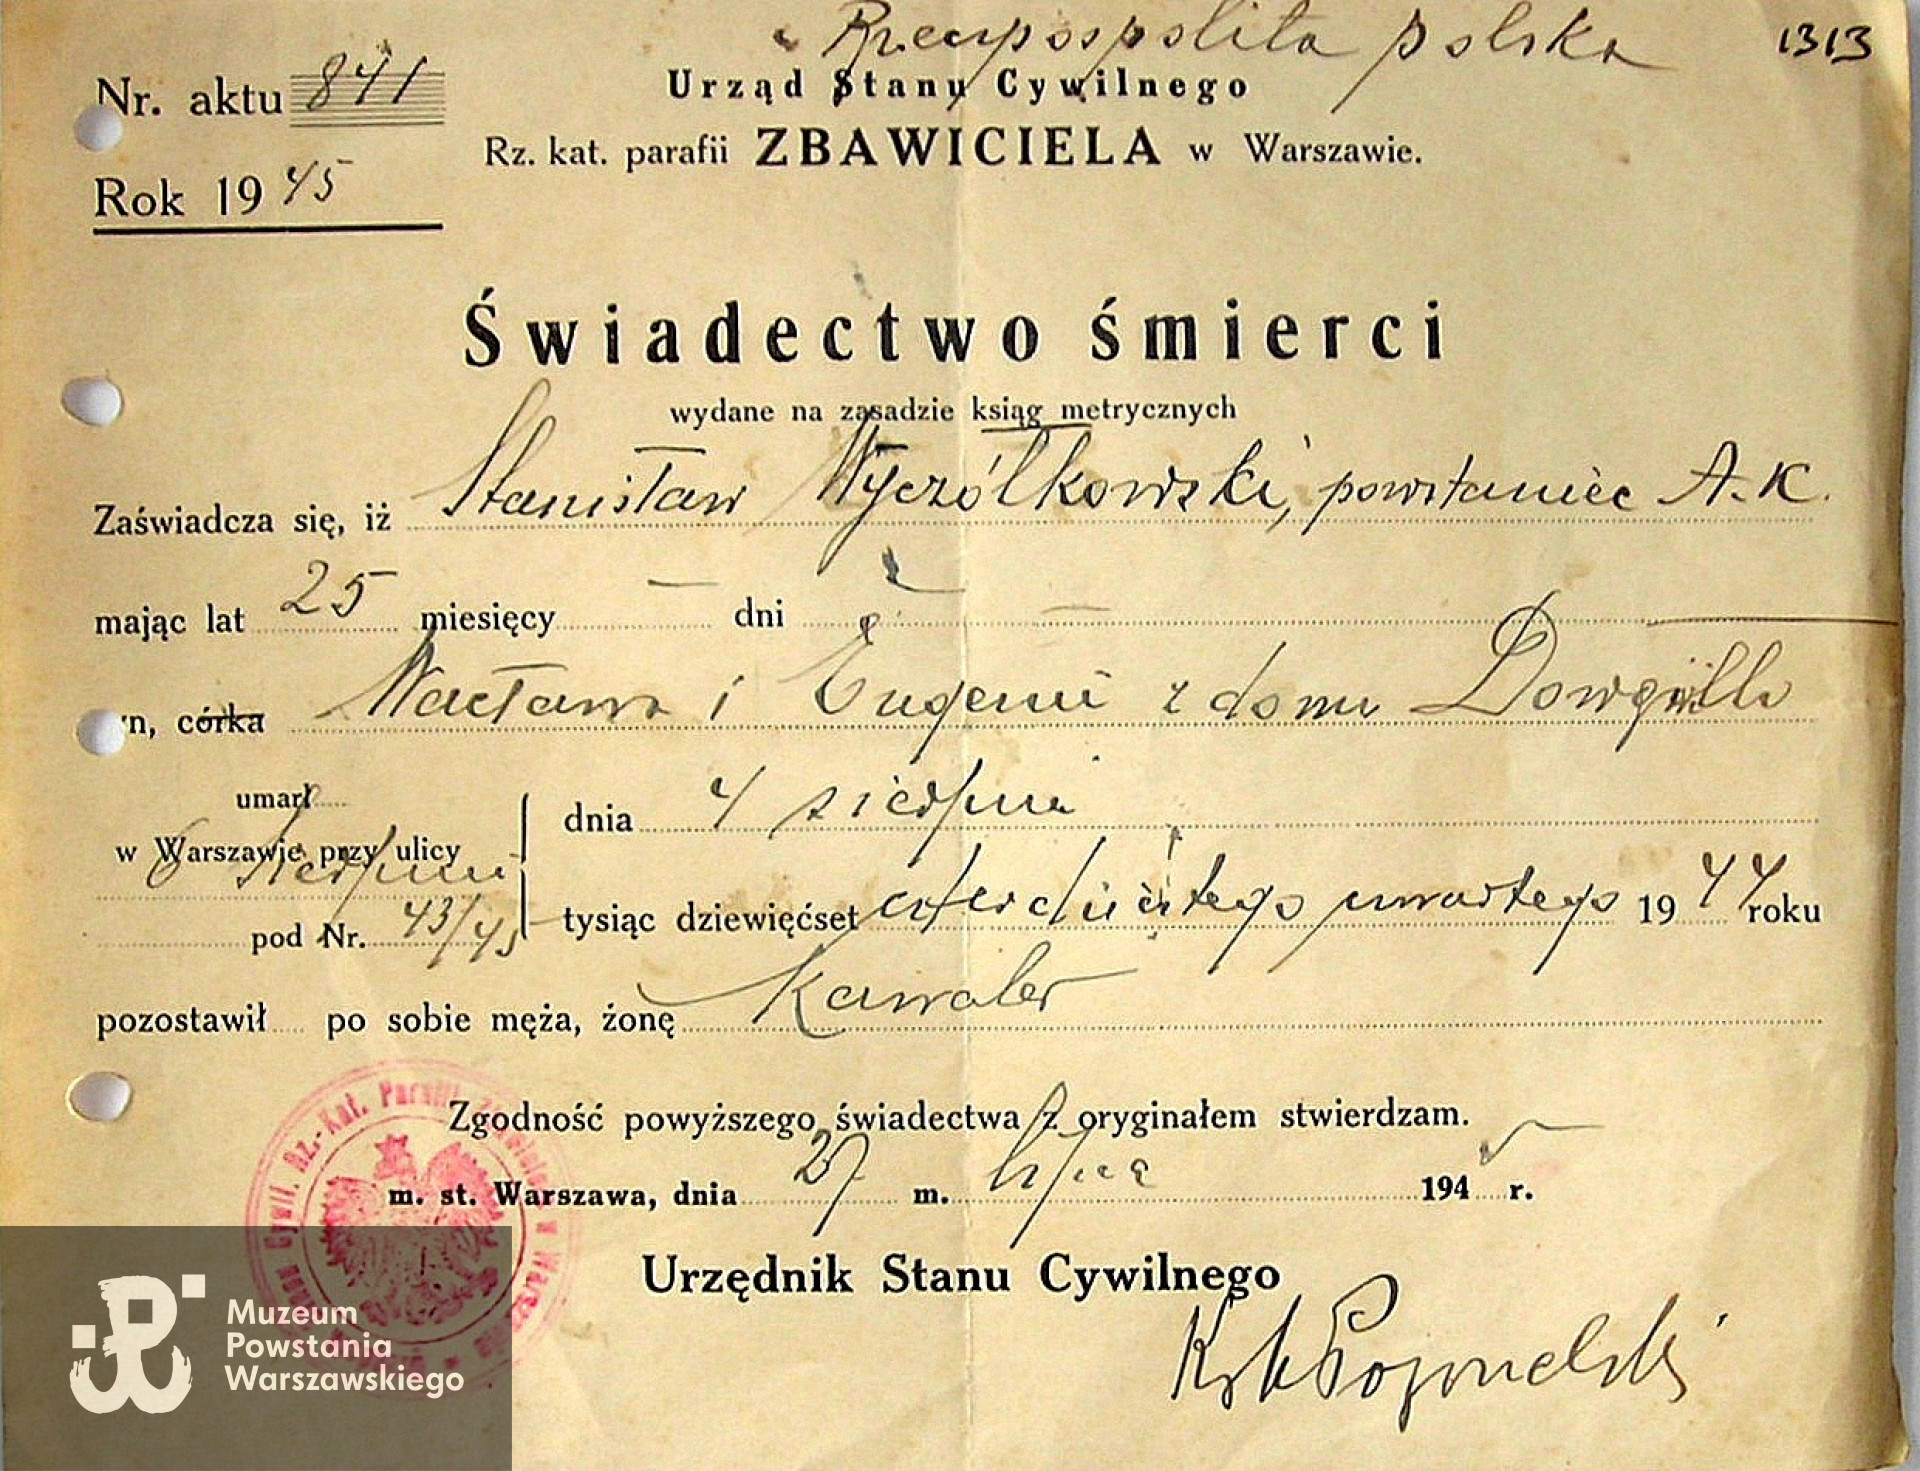 Rzeczpospolita Polska 1313
Nr. aktu 841
Urząd Stanu Cywilnego
Rz. kat. parafii ZBAWICIELA w Warszawie.
Rok 1945
Świadectwo śmierci
wydane na zasadzie ksiąg metrycznych
Zaświadcza się, iż Stanisław Wyczółkowski, powstaniec A.K.
mając lat 25 miesięcy — dni —
yn, córka Wacława i Eugenii z domu Dowgiałło
umarł
w Warszawie przy ulicy
6 Sierpnia
pod Nr. 43/45
dnia 4 sierpnia
tysiąc dziewięćset czterdziestego czwartego 1944 roku
pozostawił po sobie męża, żonę Kawaler
Zgodność powyższego świadectwa z oryginałem stwierdzam.
m. st. Warszawa, dnia 27 m. lipca 1945 r.
Urzędnik Stanu Cywilnego
Cywil. Rz.-Kat. Parafii
Muzeum
Powstania
Warszawskiego